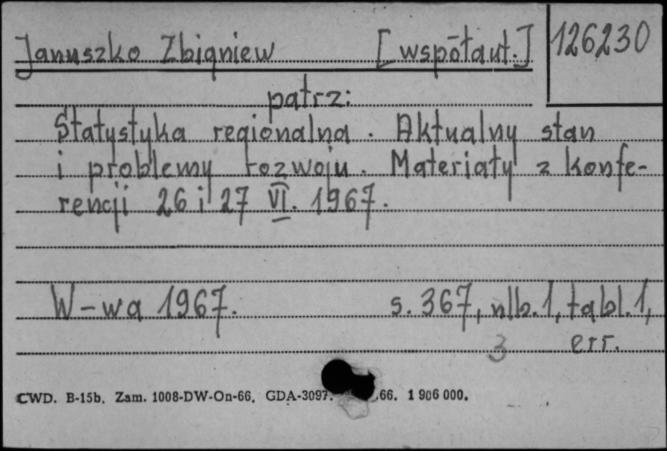 Januszko Zbigniew [współaut.] 126230
patrz:
Statystyka regionalna. Aktualny stan
i problemy rozwoju. Materiały z konfe-
rencji 26 i 27 VI. 1967.
W-wa 1967. s. 367, nlb. 1, tabl. 1,
3 err.
CWD. B-15b. Zam. 1008-DW-On-66. GDA-3097. 66. 1 906 000.